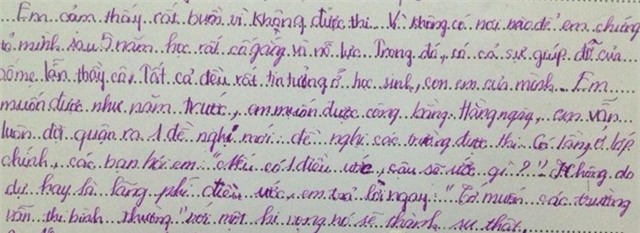 Em cảm thấy rất buồn vì không được thi. Vì không có nơi nào để em chứng
tỏ mình sau 5 năm học rất cố gắng và nỗ lực. Trong đó, có cả sự giúp đỡ của
bố mẹ lẫn thầy cô. Tất cả đều rất tin tưởng ở học sinh, con em của mình. Em
muốn được như năm trước, em muốn được công bằng. Hàng ngày, em vẫn
luôn đợi quận ra 1 đề nghị mới: đề nghị các trường được thi. Có lần, ở lớp
chính, các bạn hỏi em: "Nếu có 1 điều ước, cậu sẽ ước gì?". Không do
dự hay là lãng phí điều ước, em trả lời ngay: "Tớ muốn các trường
vẫn thi bình thường" với một hi vọng nó sẽ thành sự thật.